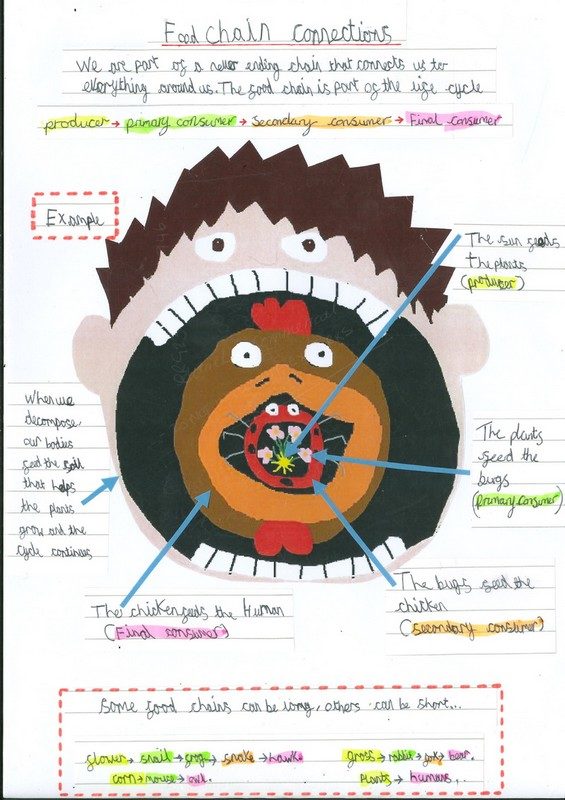 Food Chain Connections
We are part of a never ending chain that connects us to
everything around us. The food chain is part of the life cycle
producer → primary consumer → Secondary consumer → Final consumer
Example
The sun feeds
the plants
(producer)
When we
decompose,
our bodies
feed the soil
that helps
the plants
grow and the
cycle continues
The plants
feed the
bugs
(primary consumer)
The bugs feed the
chicken
(secondary consumer)
The chicken feeds the Human
(Final consumer)
Some food chains can be long, others can be short...
flower → snail → frog → snake → hawke
corn → mouse → owl.
grass → rabbit → fox → bear.
Plants → humans...